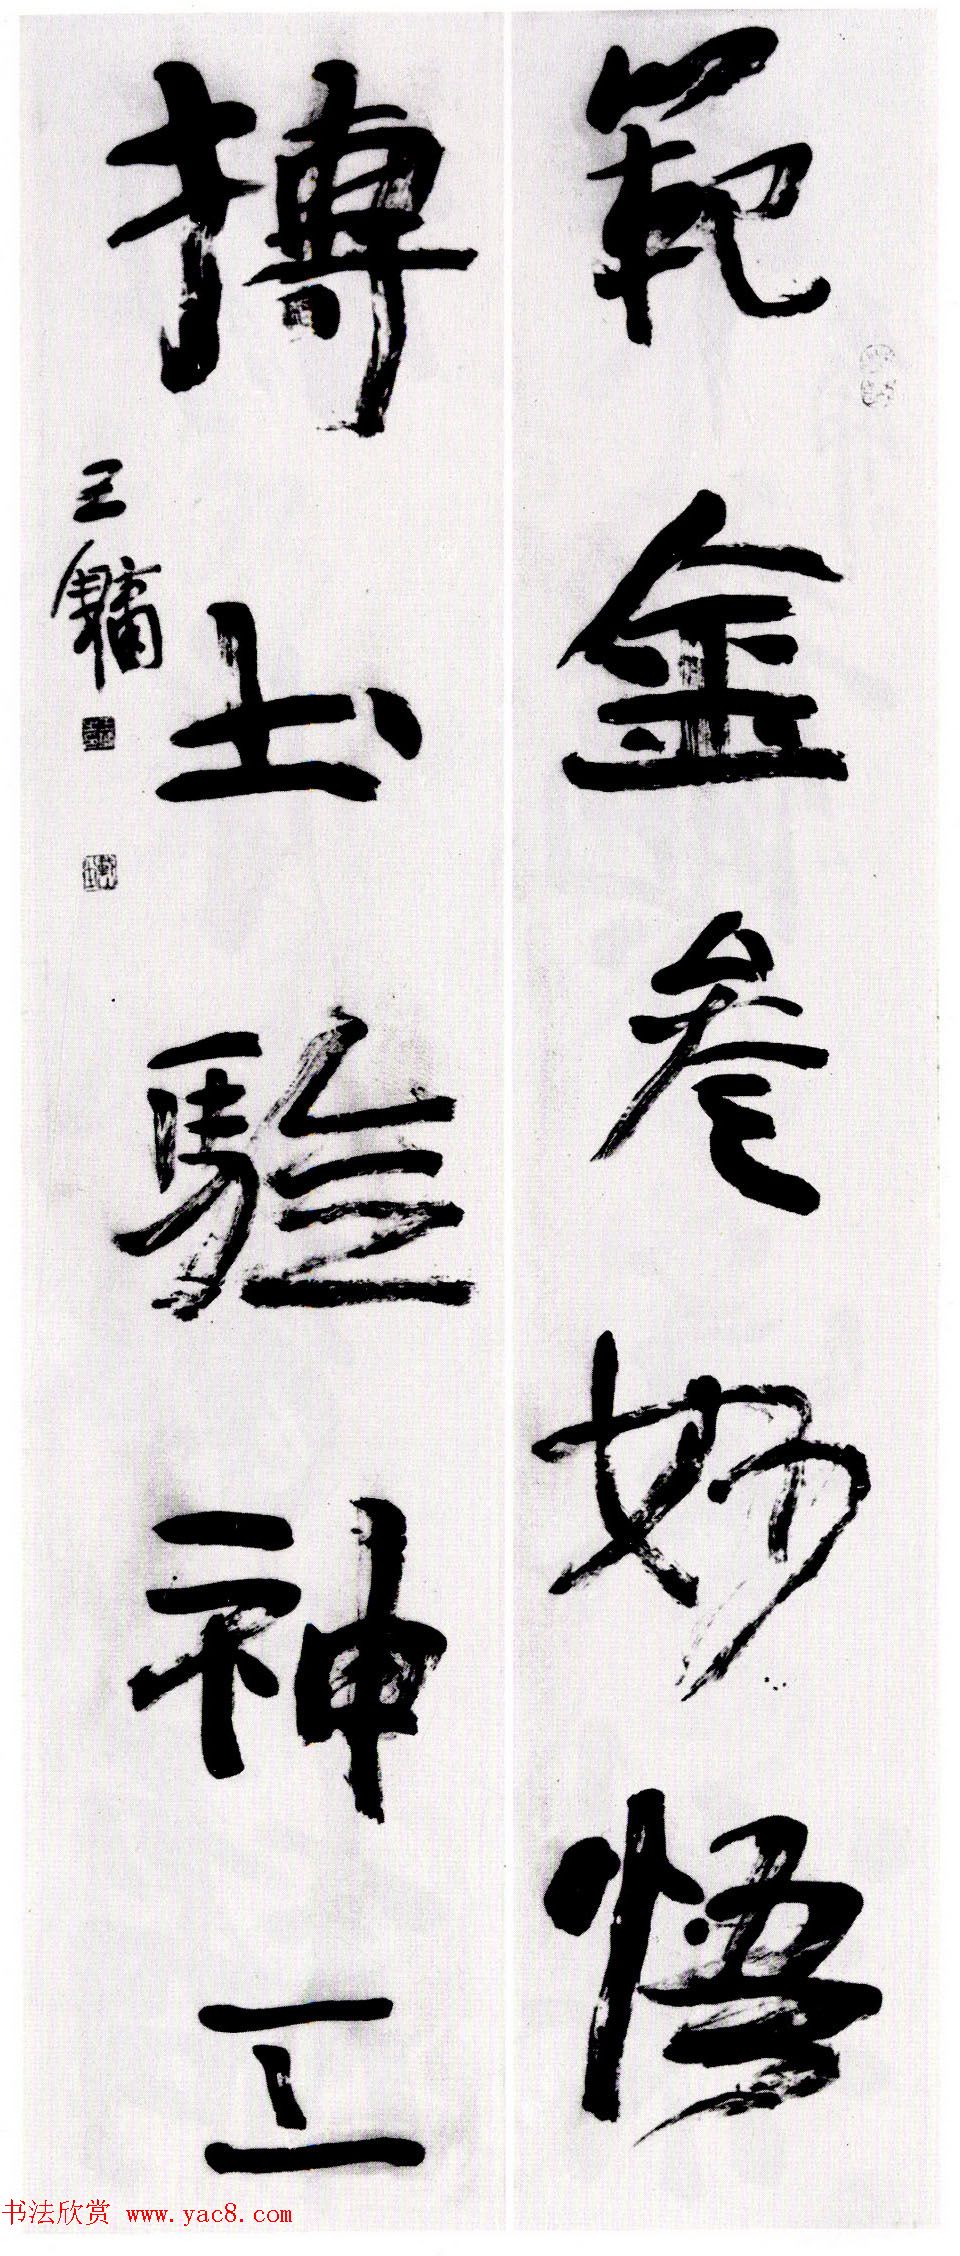 範金叁妙悟
摶土驗神工
王鏞
书法欣赏 www.yac8.com